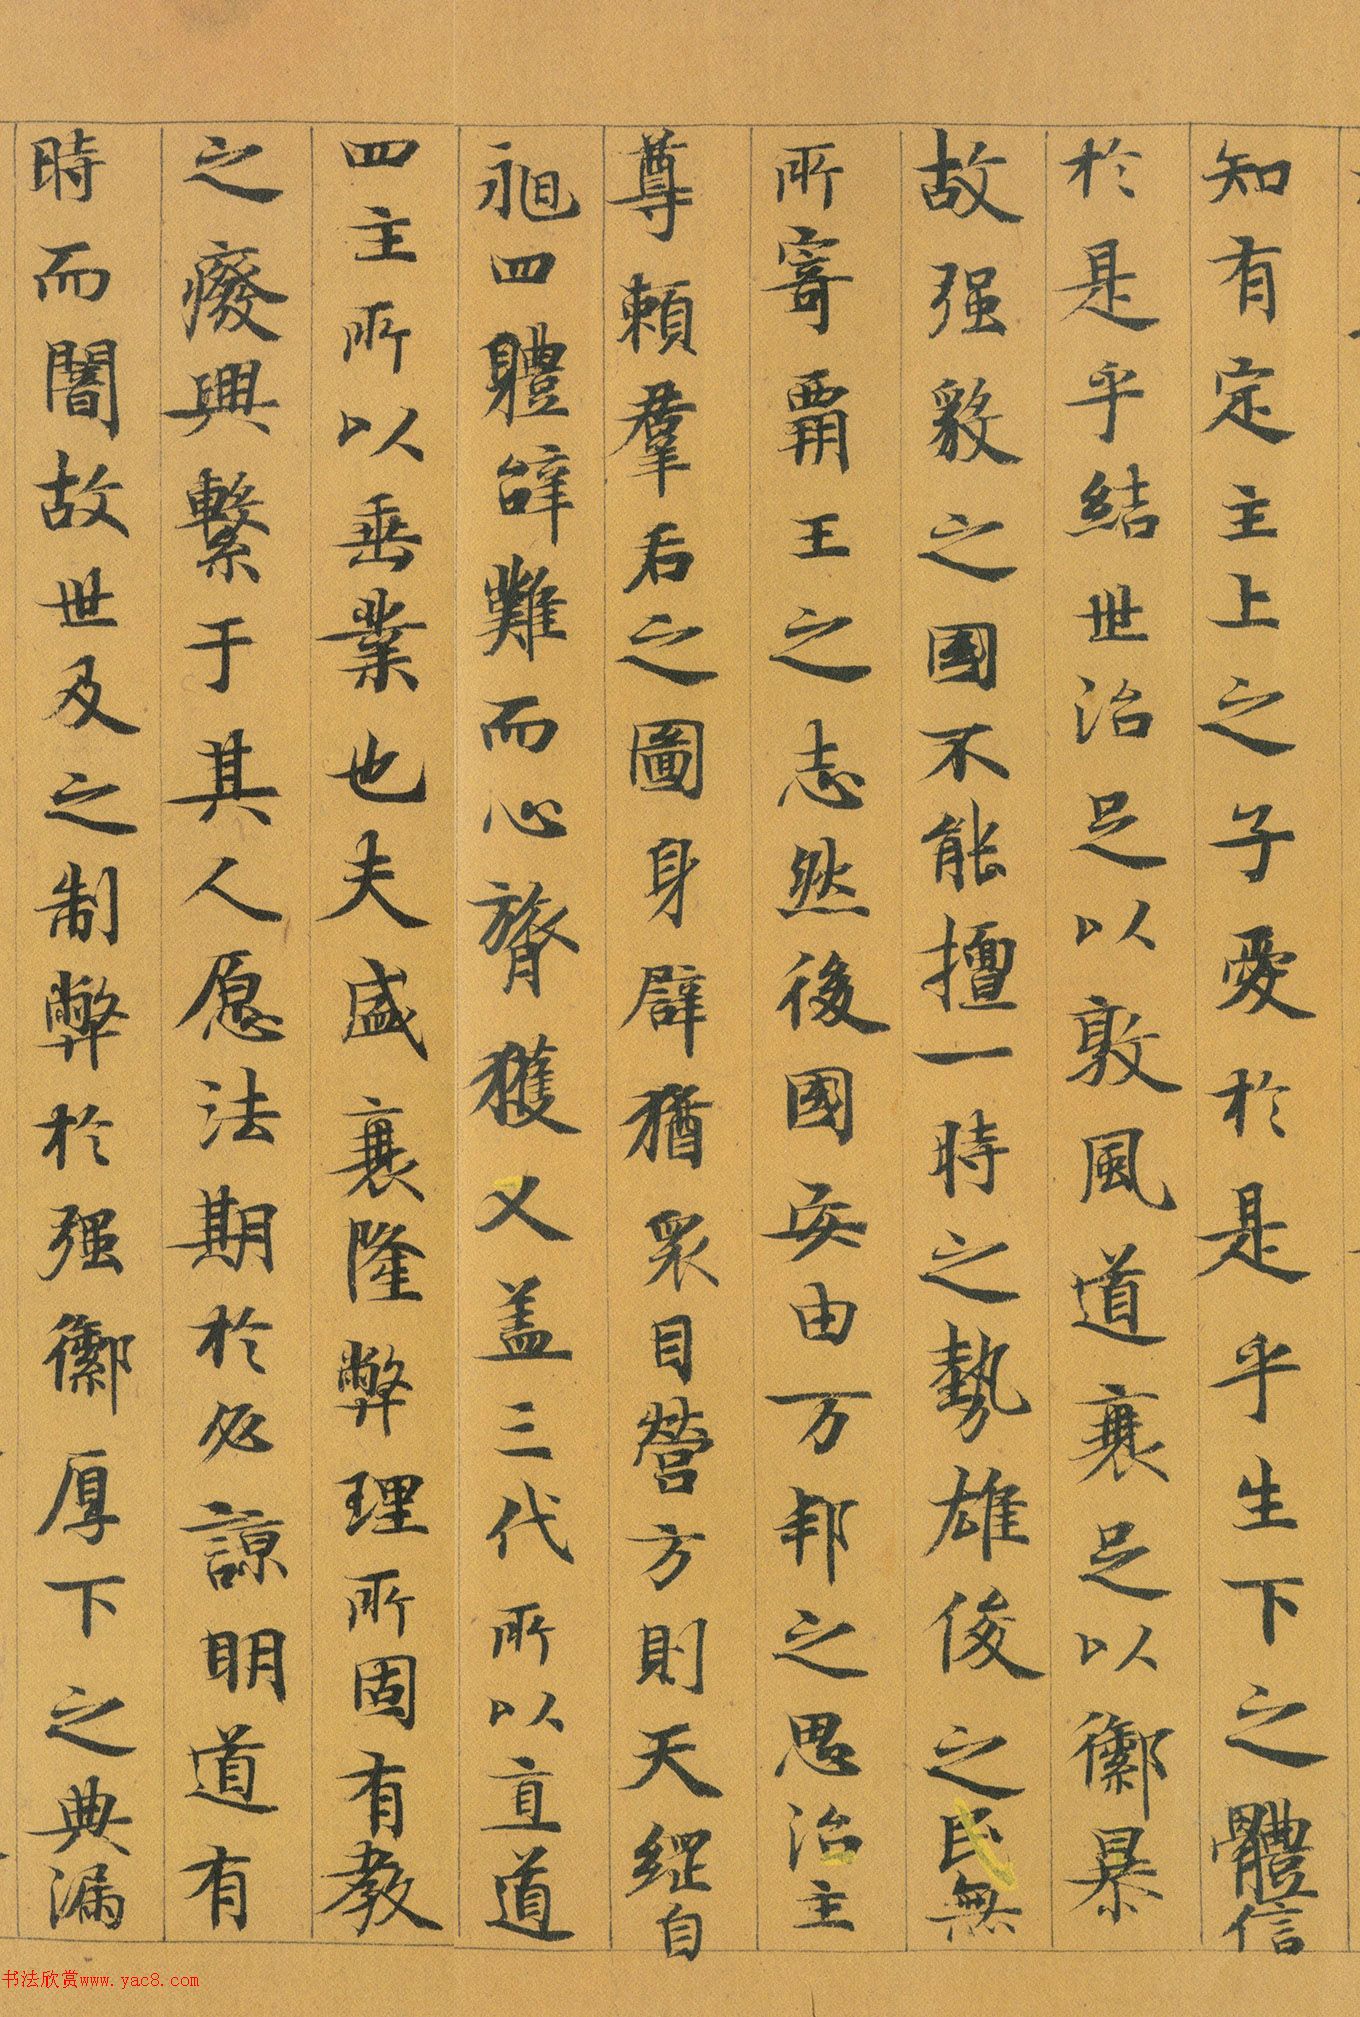 知有定主上之子愛於是乎生下之體信
於是乎結世治足以敦風道衰足以禦暴
故强毅之國不能擅一時之勢雄俊之民無
所寄霸王之志然後國安由万邦之思治主
尊賴羣后之圖身辟猶衆目營方則天網自
昶四體辭難而心膂獲乂盖三代所以直道
四主所以垂業也夫盛衰隆弊理所固有教
之癈興繫于其人愿法期於必諒明道有
時而闇故世及之制弊於强禦厚下之典漏
书法欣赏www.yac8.com